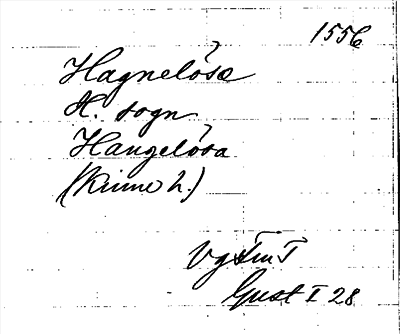 1556
Hagnelösa
H. sogn
Hangelösa
(Kinne h.)
Vg
Gust I 28